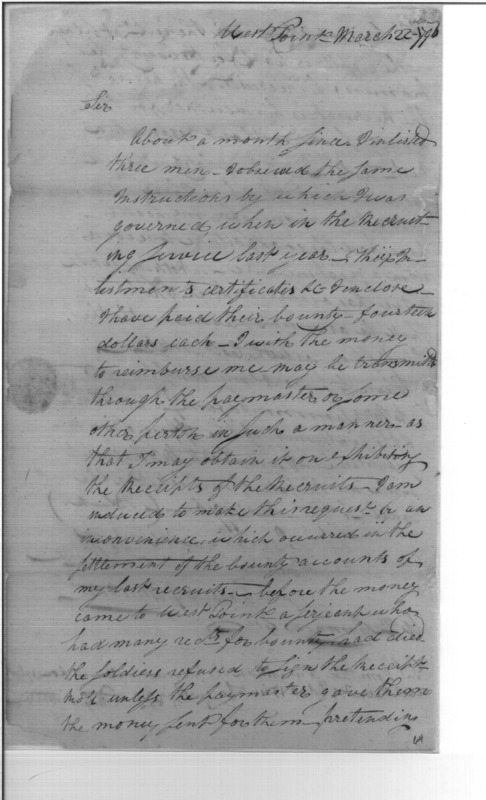 West Point March 22
Sir
About a month since I inlisted
three men - I observed the same
Instructions by which I was
governed when in the Recruit
ing service last year - their In-
listments certificates &c I enclose -
I have paid their bounty - fourteen
dollars each - I wish the money
to reimburse me may be transmitted
through the paymaster or some
other person in such a manner as
that I may obtain it on exhibiting
the Receipts of the Recruits - I am
induced to make this request by an
inconvenience which occurred in the
settlement of the bounty accounts of
my last recruits - before the money
came to West Point a serjeant who
had many recd. for bounty had died
the soldiers refused to sign the Receipt
roll unless the paymaster gave them
the money sent for them pretending